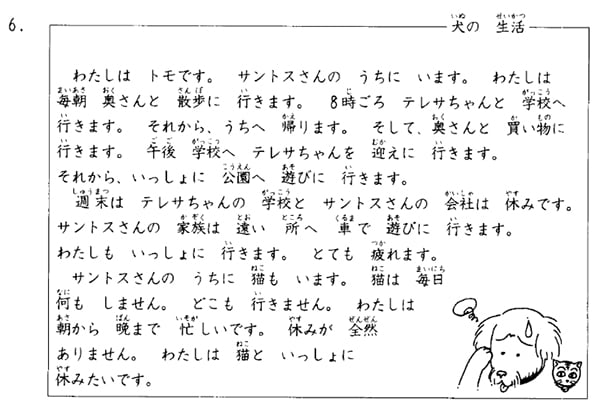 6. 犬の 生活
わたしは トモです。 サントスさんの うちに います。 わたしは
毎朝 奥さんと 散歩に 行きます。 8時ごろ テレサちゃんと 学校へ
行きます。 それから、うちへ 帰ります。 そして、奥さんと 買い物に
行きます。 午後 学校へ テレサちゃんを 迎えに 行きます。
それから、いっしょに 公園へ 遊びに 行きます。
週末は テレサちゃんの 学校と サントスさんの 会社は 休みです。
サントスさんの 家族は 遠い 所へ 車で 遊びに 行きます。
わたしも いっしょに 行きます。 とても 疲れます。
サントスさんの うちに 猫も います。 猫は 毎日
何も しません。 どこも 行きません。 わたしは
朝から 晩まで 忙しいです。 休みが 全然
ありません。 わたしは 猫と いっしょに
休みたいです。